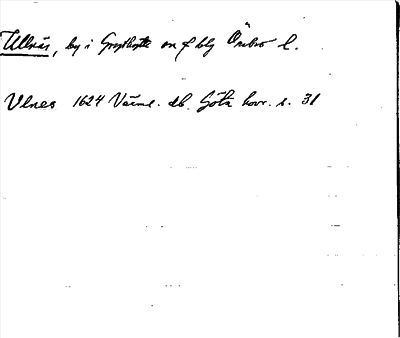 Ullnäs, by i Grythytte sn f blg Örebro l.
Vlnes 1624 Värml. db. Göta hovr. s. 31